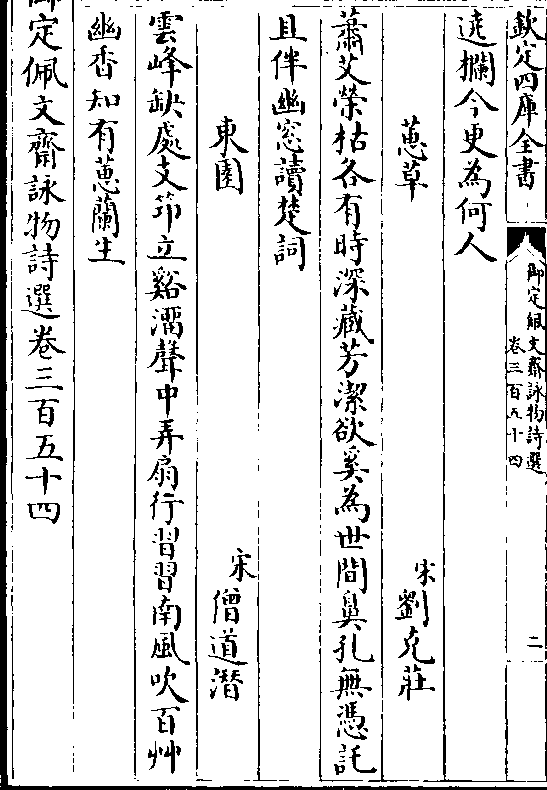 欽定四庫全書
御定佩文齋詠物詩選
卷三百五十四
二
遶欄今更為何人
蕙草
宋劉克莊
蕭艾榮枯各有時深藏芳潔欲奚為世間鼻孔無憑託
且伴幽窓讀楚詞
東園
宋僧道潛
雲峰缺處支笻立谿溜聲中弄扇行習習南風吹百艸
幽香知有蕙蘭生
御定佩文齋詠物詩選卷三百五十四